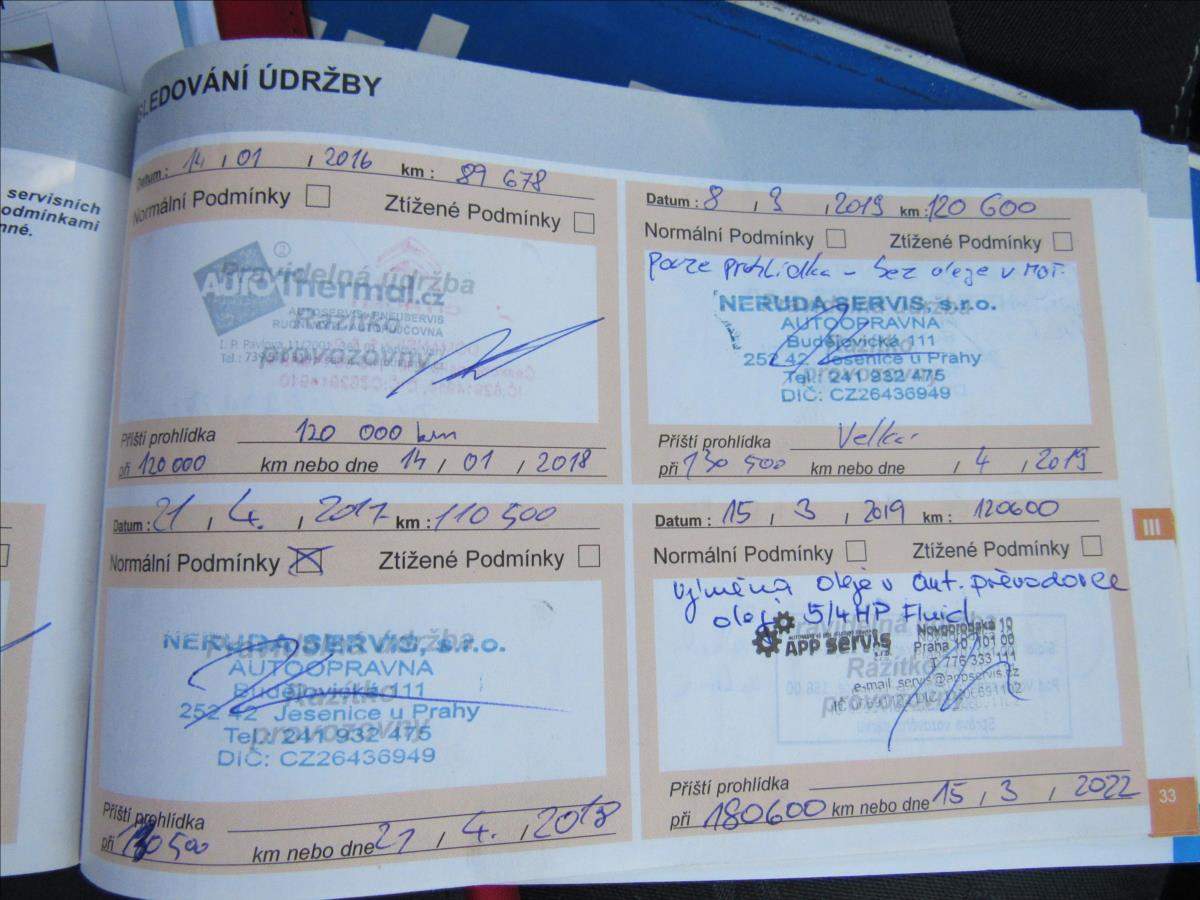 SLEDOVÁNÍ ÚDRŽBY
servisních
odmínkami
nné.
Datum : 14 , 01 , 2016 km : 89 678
Normální Podmínky Ztížené Podmínky
Pravidelná údržba
AUTOThermal.cz
AUTOSERVIS PNEUSERVIS
Razítko
provozovny
Příští prohlídka 120 000 km
při 120 000 km nebo dne 14 , 01 , 2018
Datum : 21 , 4. , 2017 km : 110 500
Normální Podmínky Ztížené Podmínky
NERUDA SERVIS, s.r.o.
AUTOOPRAVNA
Budějovická 111
252 42 Jesenice u Prahy
Tel.: 241 932 475
DIČ: CZ26436949
Razítko
provozovny
Příští prohlídka
při 130 500 km nebo dne 21 , 4. , 2018
Datum : 8 , 3 , 2019 km : 120 600
Normální Podmínky Ztížené Podmínky
pouze prohlídka - bez oleje v mot.
NERUDA SERVIS, s.r.o.
AUTOOPRAVNA
Budějovická 111
252 42 Jesenice u Prahy
Tel.: 241 932 475
DIČ: CZ26436949
Razítko
provozovny
Příští prohlídka Velká
při 130 500 km nebo dne , 4 , 2019
Datum : 15 , 3 , 2019 km : 120600
Normální Podmínky Ztížené Podmínky
Výměna oleje v aut. převodovce
olej 5/4HP Fluid
Pravidelná údržba
APP servis
Novopořádská 10
Praha 10 101 00
T 776 333 111
e-mail servis@appservis.cz
Razítko
provozovny
Příští prohlídka
při 180600 km nebo dne 15 , 3 , 2022
III
33